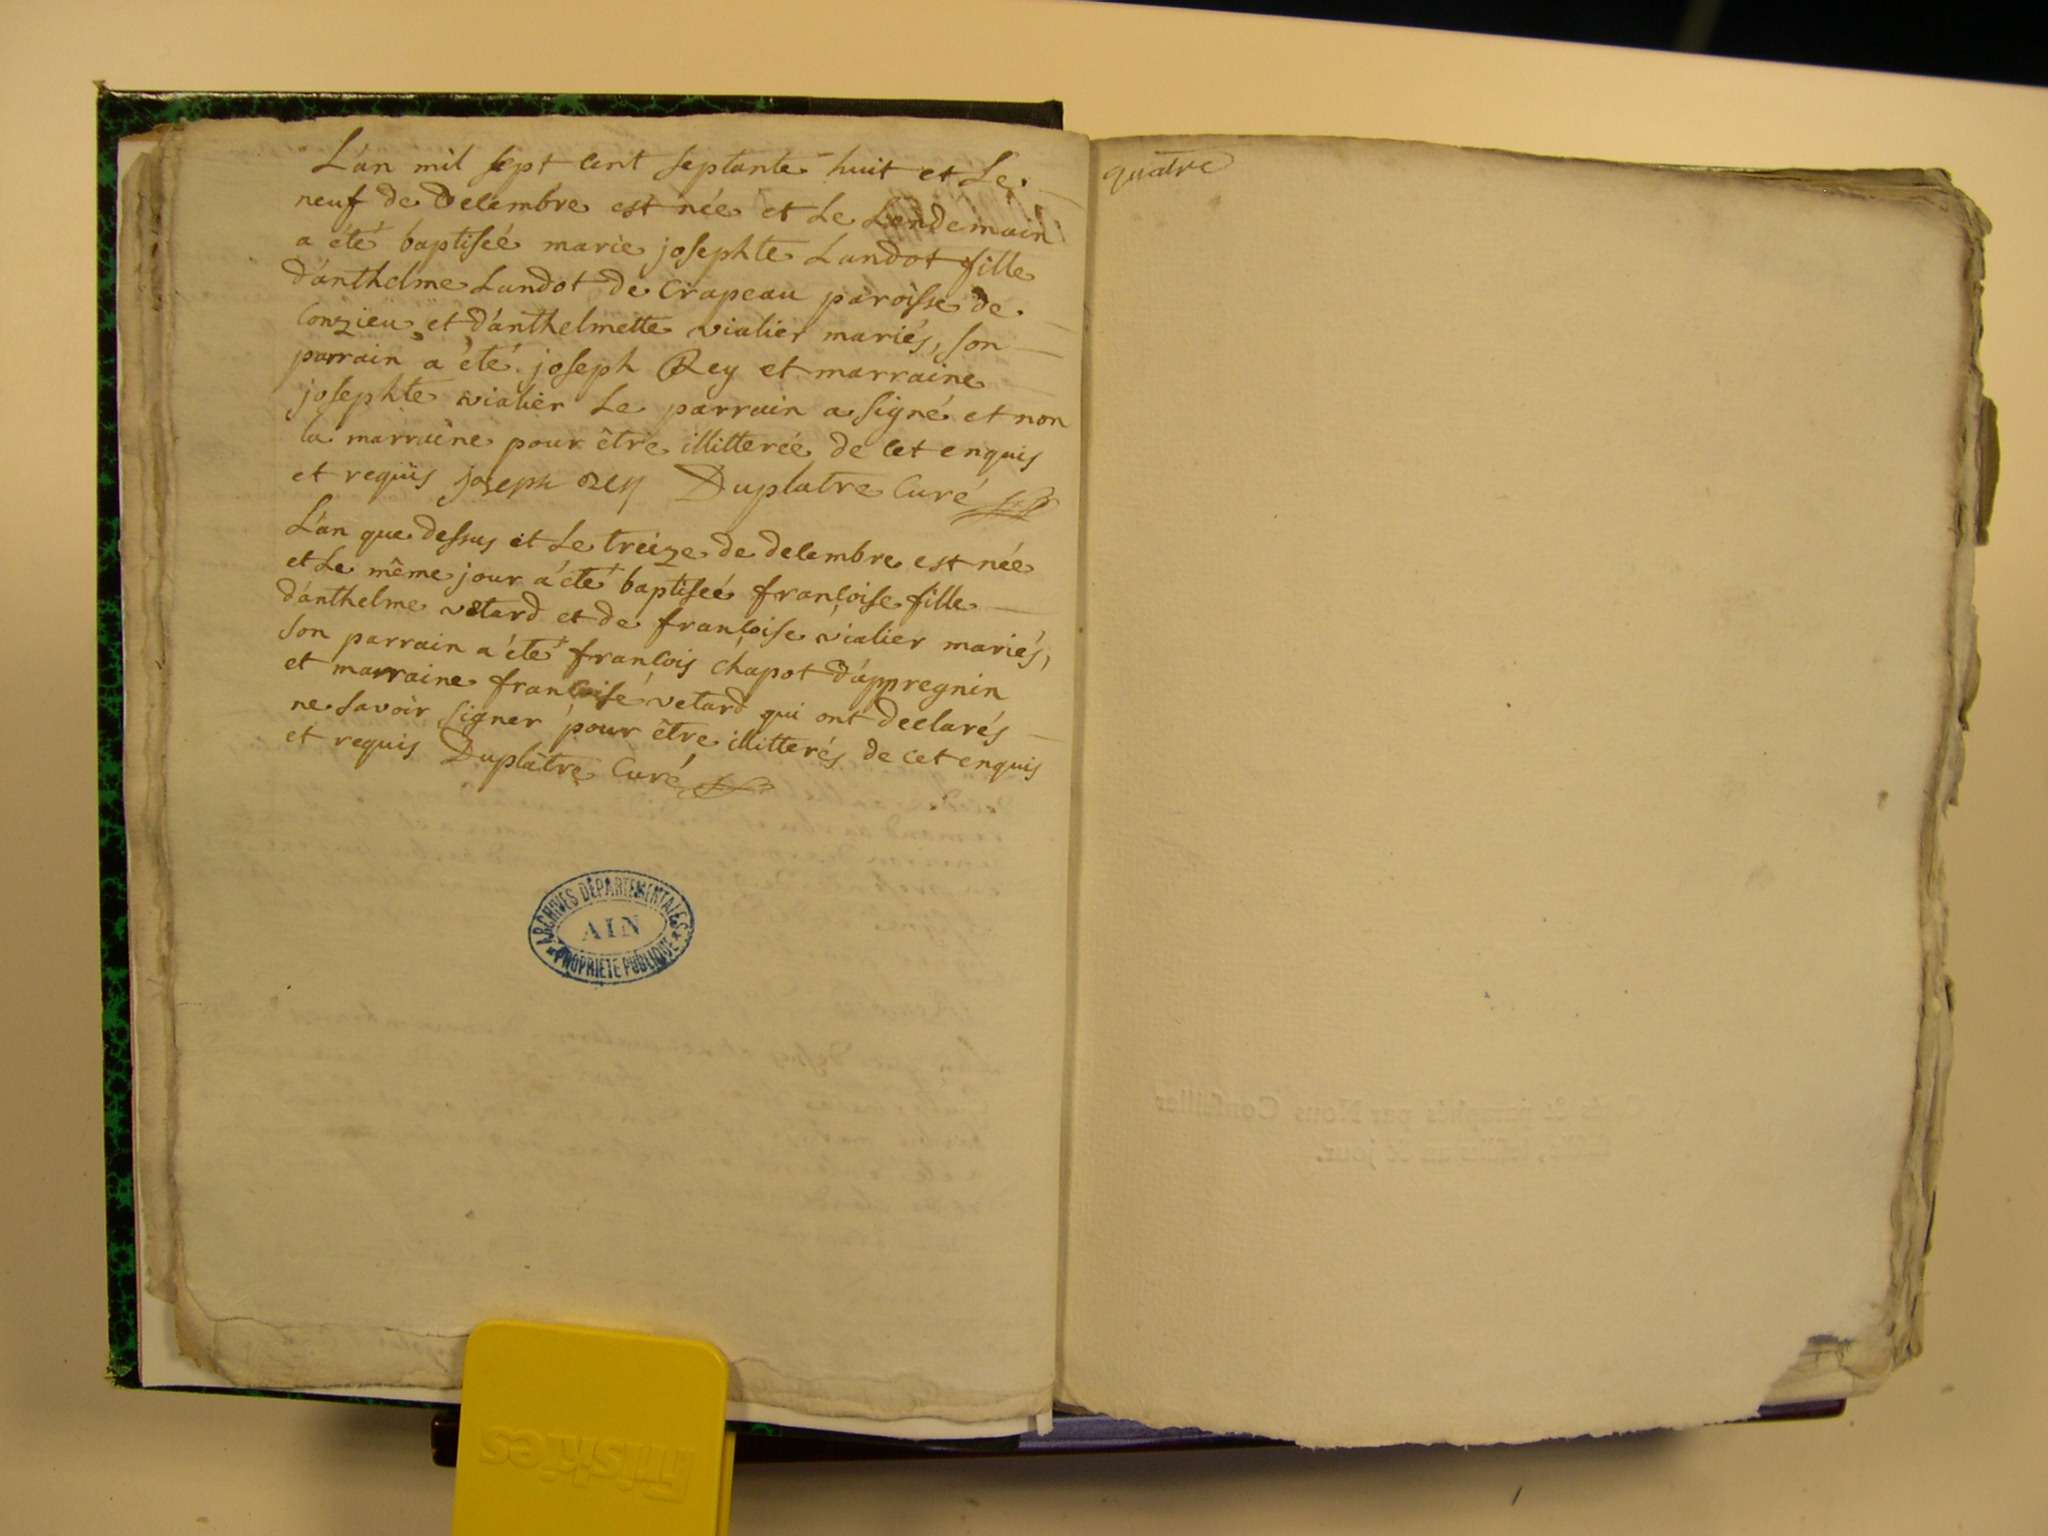 L'an mil sept cent septante huit et Le
neuf de Decembre est née et Le Lendemain
a été baptiseé marie josephte Landot fille
d'anthelme Landot de Crapeau paroisse de
Conzieu et d'anthelmette vialier mariés, son
parrain a été joseph Rey et marraine
josephte vialier Le parrain a signé et non
la marraine pour être illitterée de cet enquis
et requis joseph Rey Duplatre Curé
L'an que dessus et Le treize de decembre est née
et Le même jour a été baptiseé françoise fille
d'anthelme vetard et de françoise vialier mariés,
son parrain a été françois chapot d'appregnin
et marraine françoise vetard qui ont declarés
ne savoir signer pour être illitterés de cet enquis
et requis Duplâtre Curé
ARCHIVES DÉPARTEMENTALES
AIN
PROPRIÉTÉ PUBLIQUE
quatre
Friskies